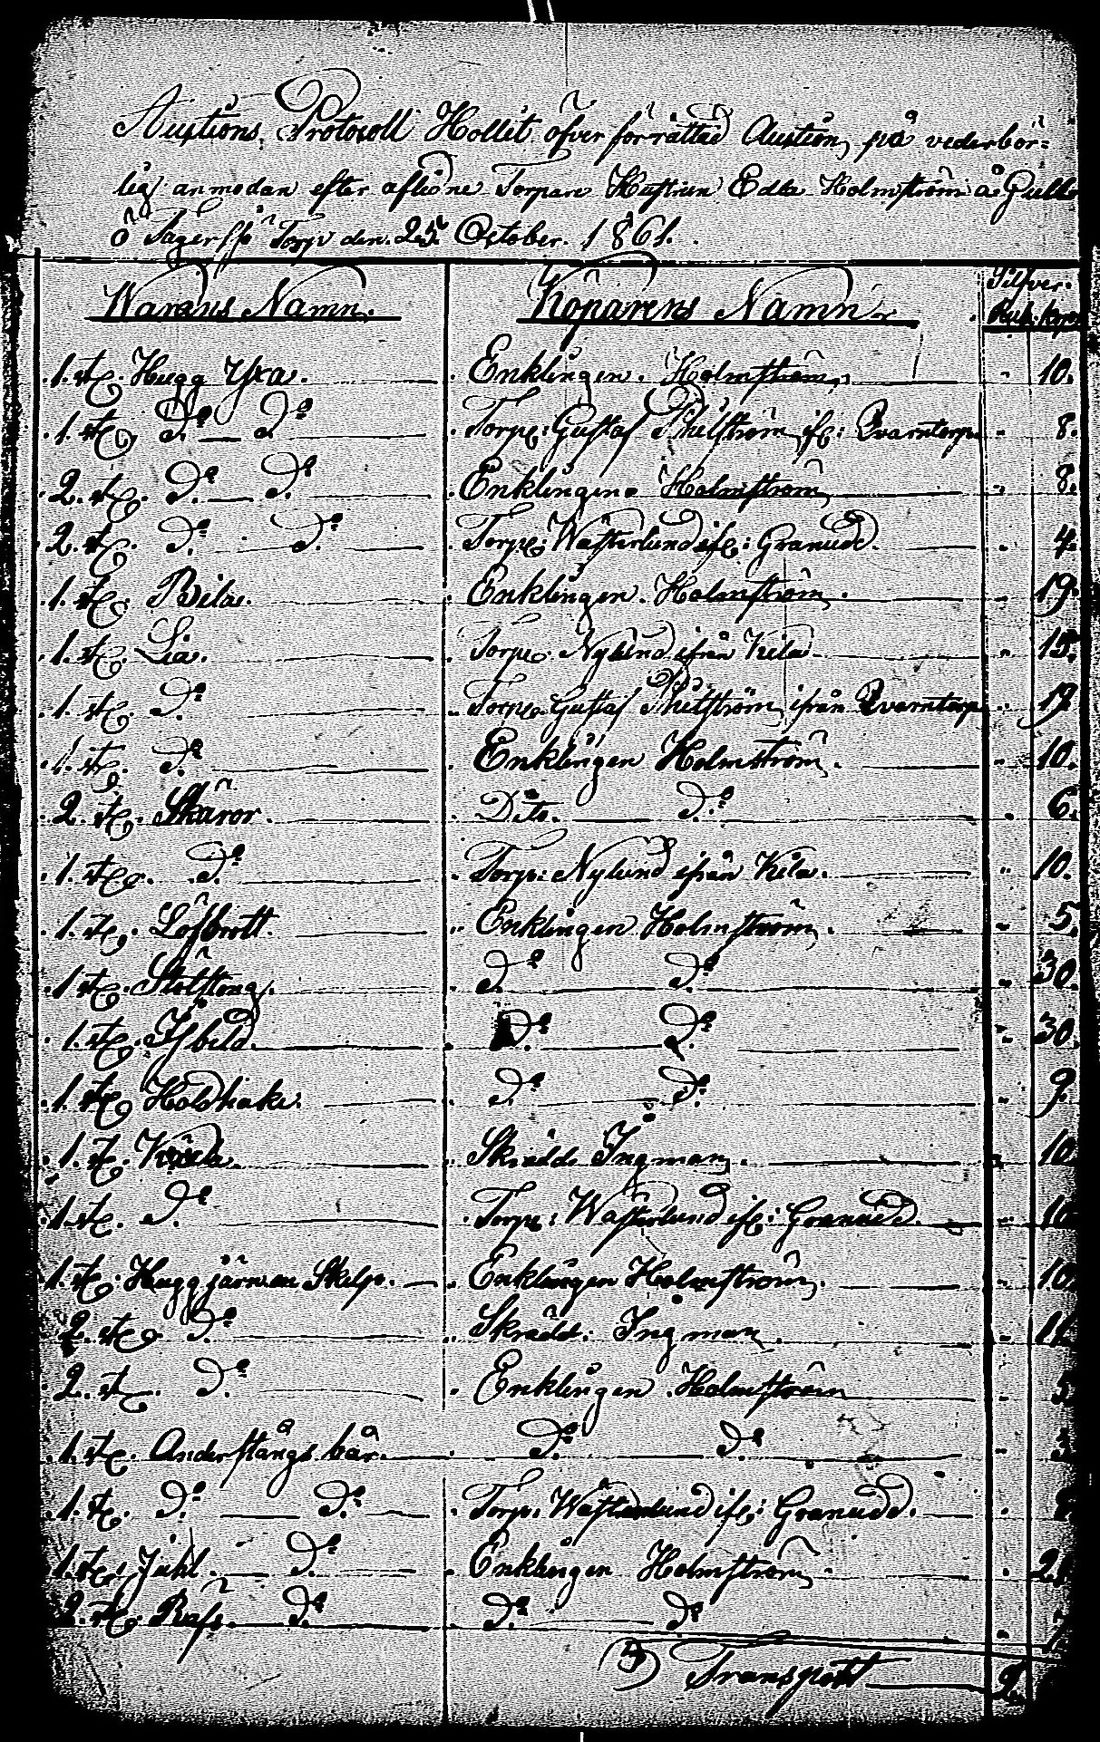 Auktions Protocoll Hollit öfver förrättad Auktion, på vederbör=
lig anmodan efter aflidne Torpare Hustrun Edla Holmström å Gullö
ö Torp den. 25. October. 1861.
Warans Namn. Köparens Namn Silfver.
Rub. kop.
1. st. Hugg Yxa. Enklingen. Holmström, " 10.
1. st. Do Do Torp: Gustaf Thilström if: Qvarntorp " 8.
2. st. Do Do Enklingen Holmström " 8.
2. st. Do Do Torp: Wästerlund if: Granudd. " 4.
1. st. Bila. Enklingen. Holmström. " 19.
1. st. Lia. Torp. Nylund ifrån Kila " 15.
1. st. Do Torp. Gustaf Thilström ifrån Qvarntorp " 19
1. st. Do Enklingen Holmström. " 10.
2. st. Skäror. Dito. Do " 6.
1. st. Do Torp: Nylund ifrån Kila. " 10.
1. st. Enklingen Holmström. " 5.
1 st. Do Do " 30.
1. st. Isbild. Do Do " 30.
1. st. Do Do " 9.
1. st. Skrädd. Ingman. " 10
1. st. Do Torp: Wästerlund if: Granudd. " 10
1. st. Huggjärn en Skelp. Enklingen Holmström. " 10.
2. st. Do Skrädd: Ingman. " 11.
2. st. Do Enklingen Holmström " 5
1. st. Anderstångs bår. Do Do "
1. st. Do Do Torp. Wästerlund if: Granudd. "
1. st. Do Enklingen Holmström "
2. st. Do Do Do "
Transport